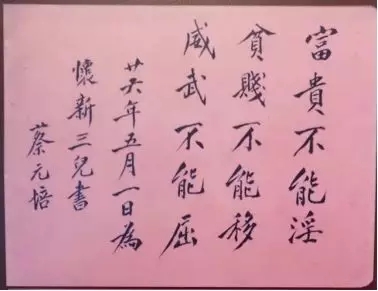 富貴不能淫
貧賤不能移
威武不能屈
廿六年五月一日為
懷新三兒書
蔡元培